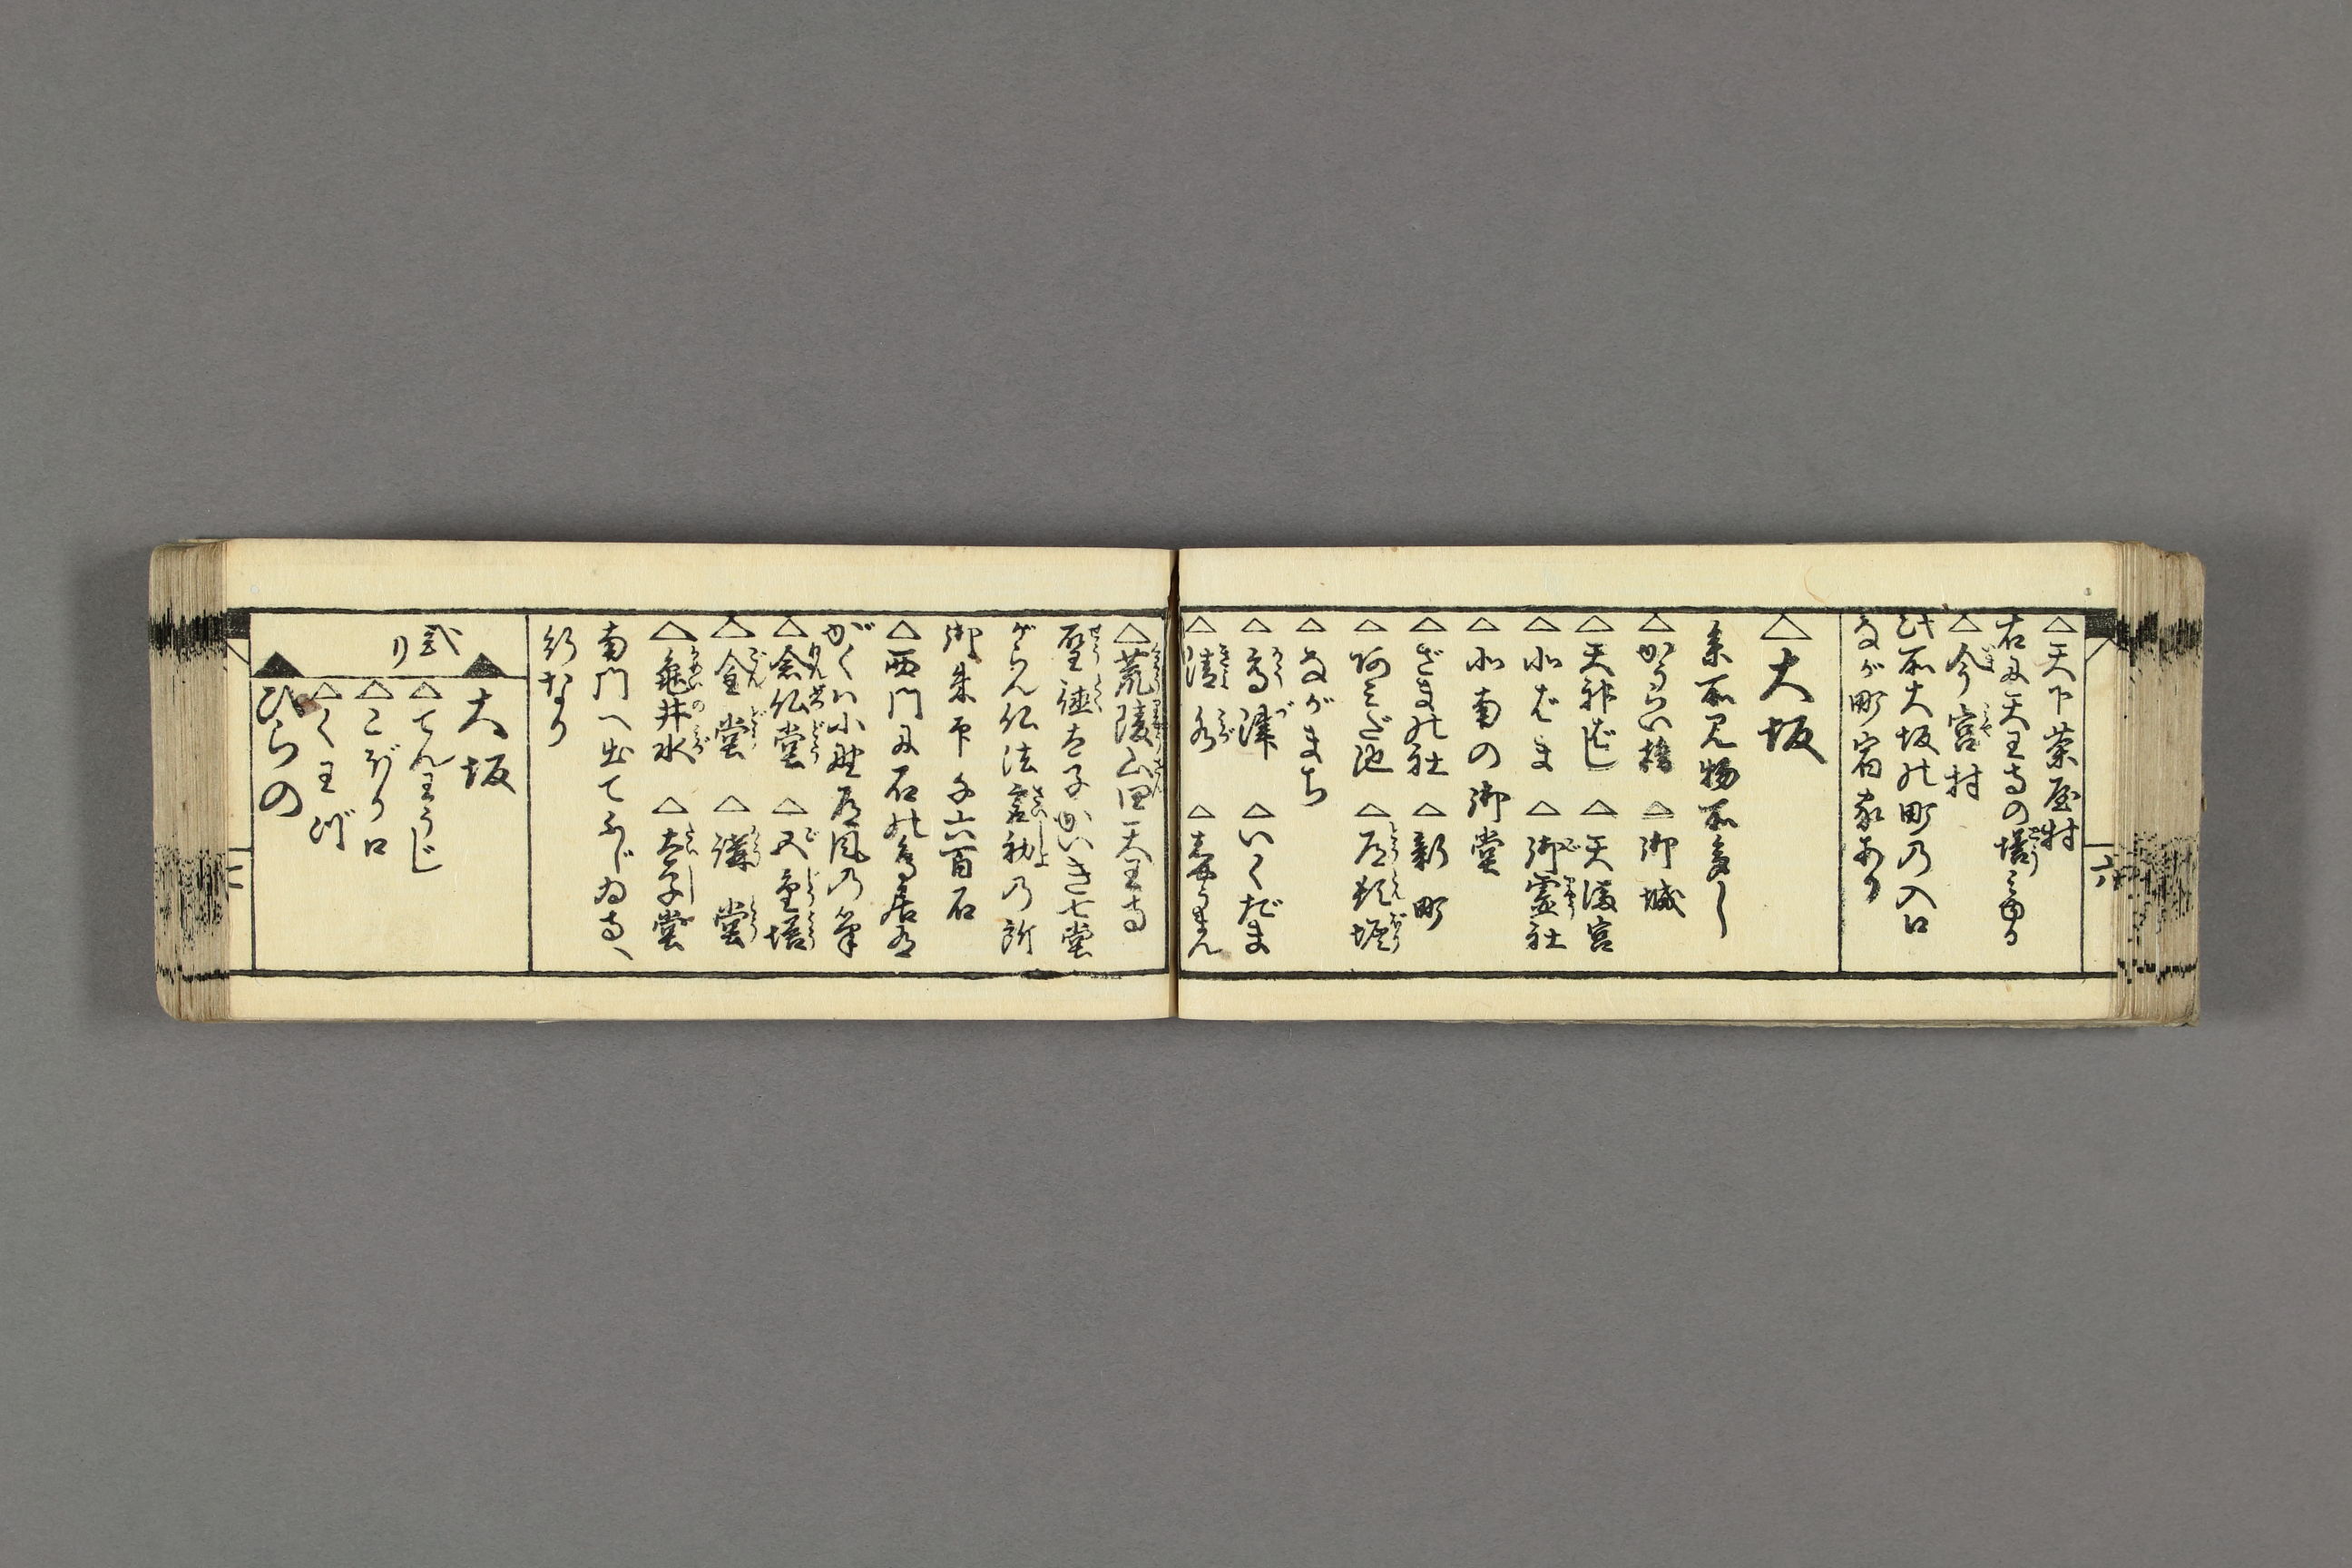 △天下茶屋村
右に天王寺の塔みゆる
△今宮村
此所大坂の町の入口
ながの町宿家あり
△大坂
名所見物所多し
△かうらい橋 △御城
△天神ばし △天満宮
△北はま △御霊社
△北南の御堂
△ざまの社 △新町
△阿みだ池 △道頓堀
△ながまち
△高津 △いくだま
△清水 △しゆうまん
△荒陵山四天王寺
聖徳太子かいき七堂
がらん仏法最初の所
御朱印千六百石
△西門に石の鳥居有
がくハ小野道風の筆
△念仏堂 △五重塔
△金堂 △講堂
△亀井水 △太子堂
南門へ出てふぢゐ寺へ
行なり
▲大坂
弐リ
△てんわうじ
△こぼり口
△くわづ
▲ひらの
六